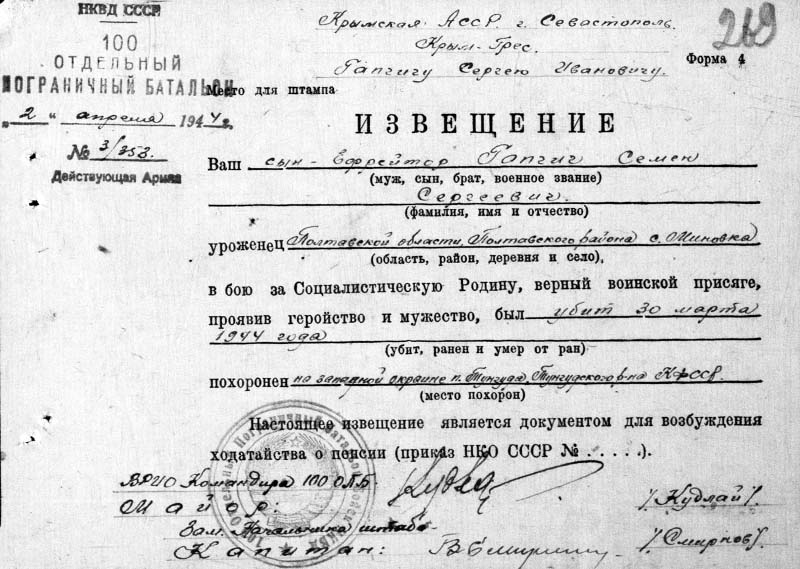 НКВД СССР
100
ОТДЕЛЬНЫЙ
ПОГРАНИЧНЫЙ БАТАЛЬОН
„2" апреля 1944г.
№ 3/353.
Действующая Армия
Крымская АССР г. Севастополь
Крым-Грес.
Гапчигу Сергею Ивановичу.
269
Форма 4
Место для штампа
ИЗВЕЩЕНИЕ
Ваш сын-Ефрейтор Гапчиг Семен
(муж, сын, брат, военное звание)
Сергеевич.
(фамилия, имя и отчество)
уроженец Полтавской области, Полтавского района с.
(область, район, деревня и село),
в бою за Социалистическую Родину, верный воинской присяге,
проявив геройство и мужество, был убит 30 марта
1944 года
(убит, ранен и умер от ран)
похоронен на западной окраине п. Тунгуда, Тунгудского р-на КФССР
(место похорон)
Настоящее извещение является документом для возбуждения
ходатайства о пенсии (приказ НКО СССР № . . . . .).
ВРИО Командира 100 ОПБ
Майор: /Кудлай/.
Зам. Начальника штаба
Капитан: /Смирнов/.